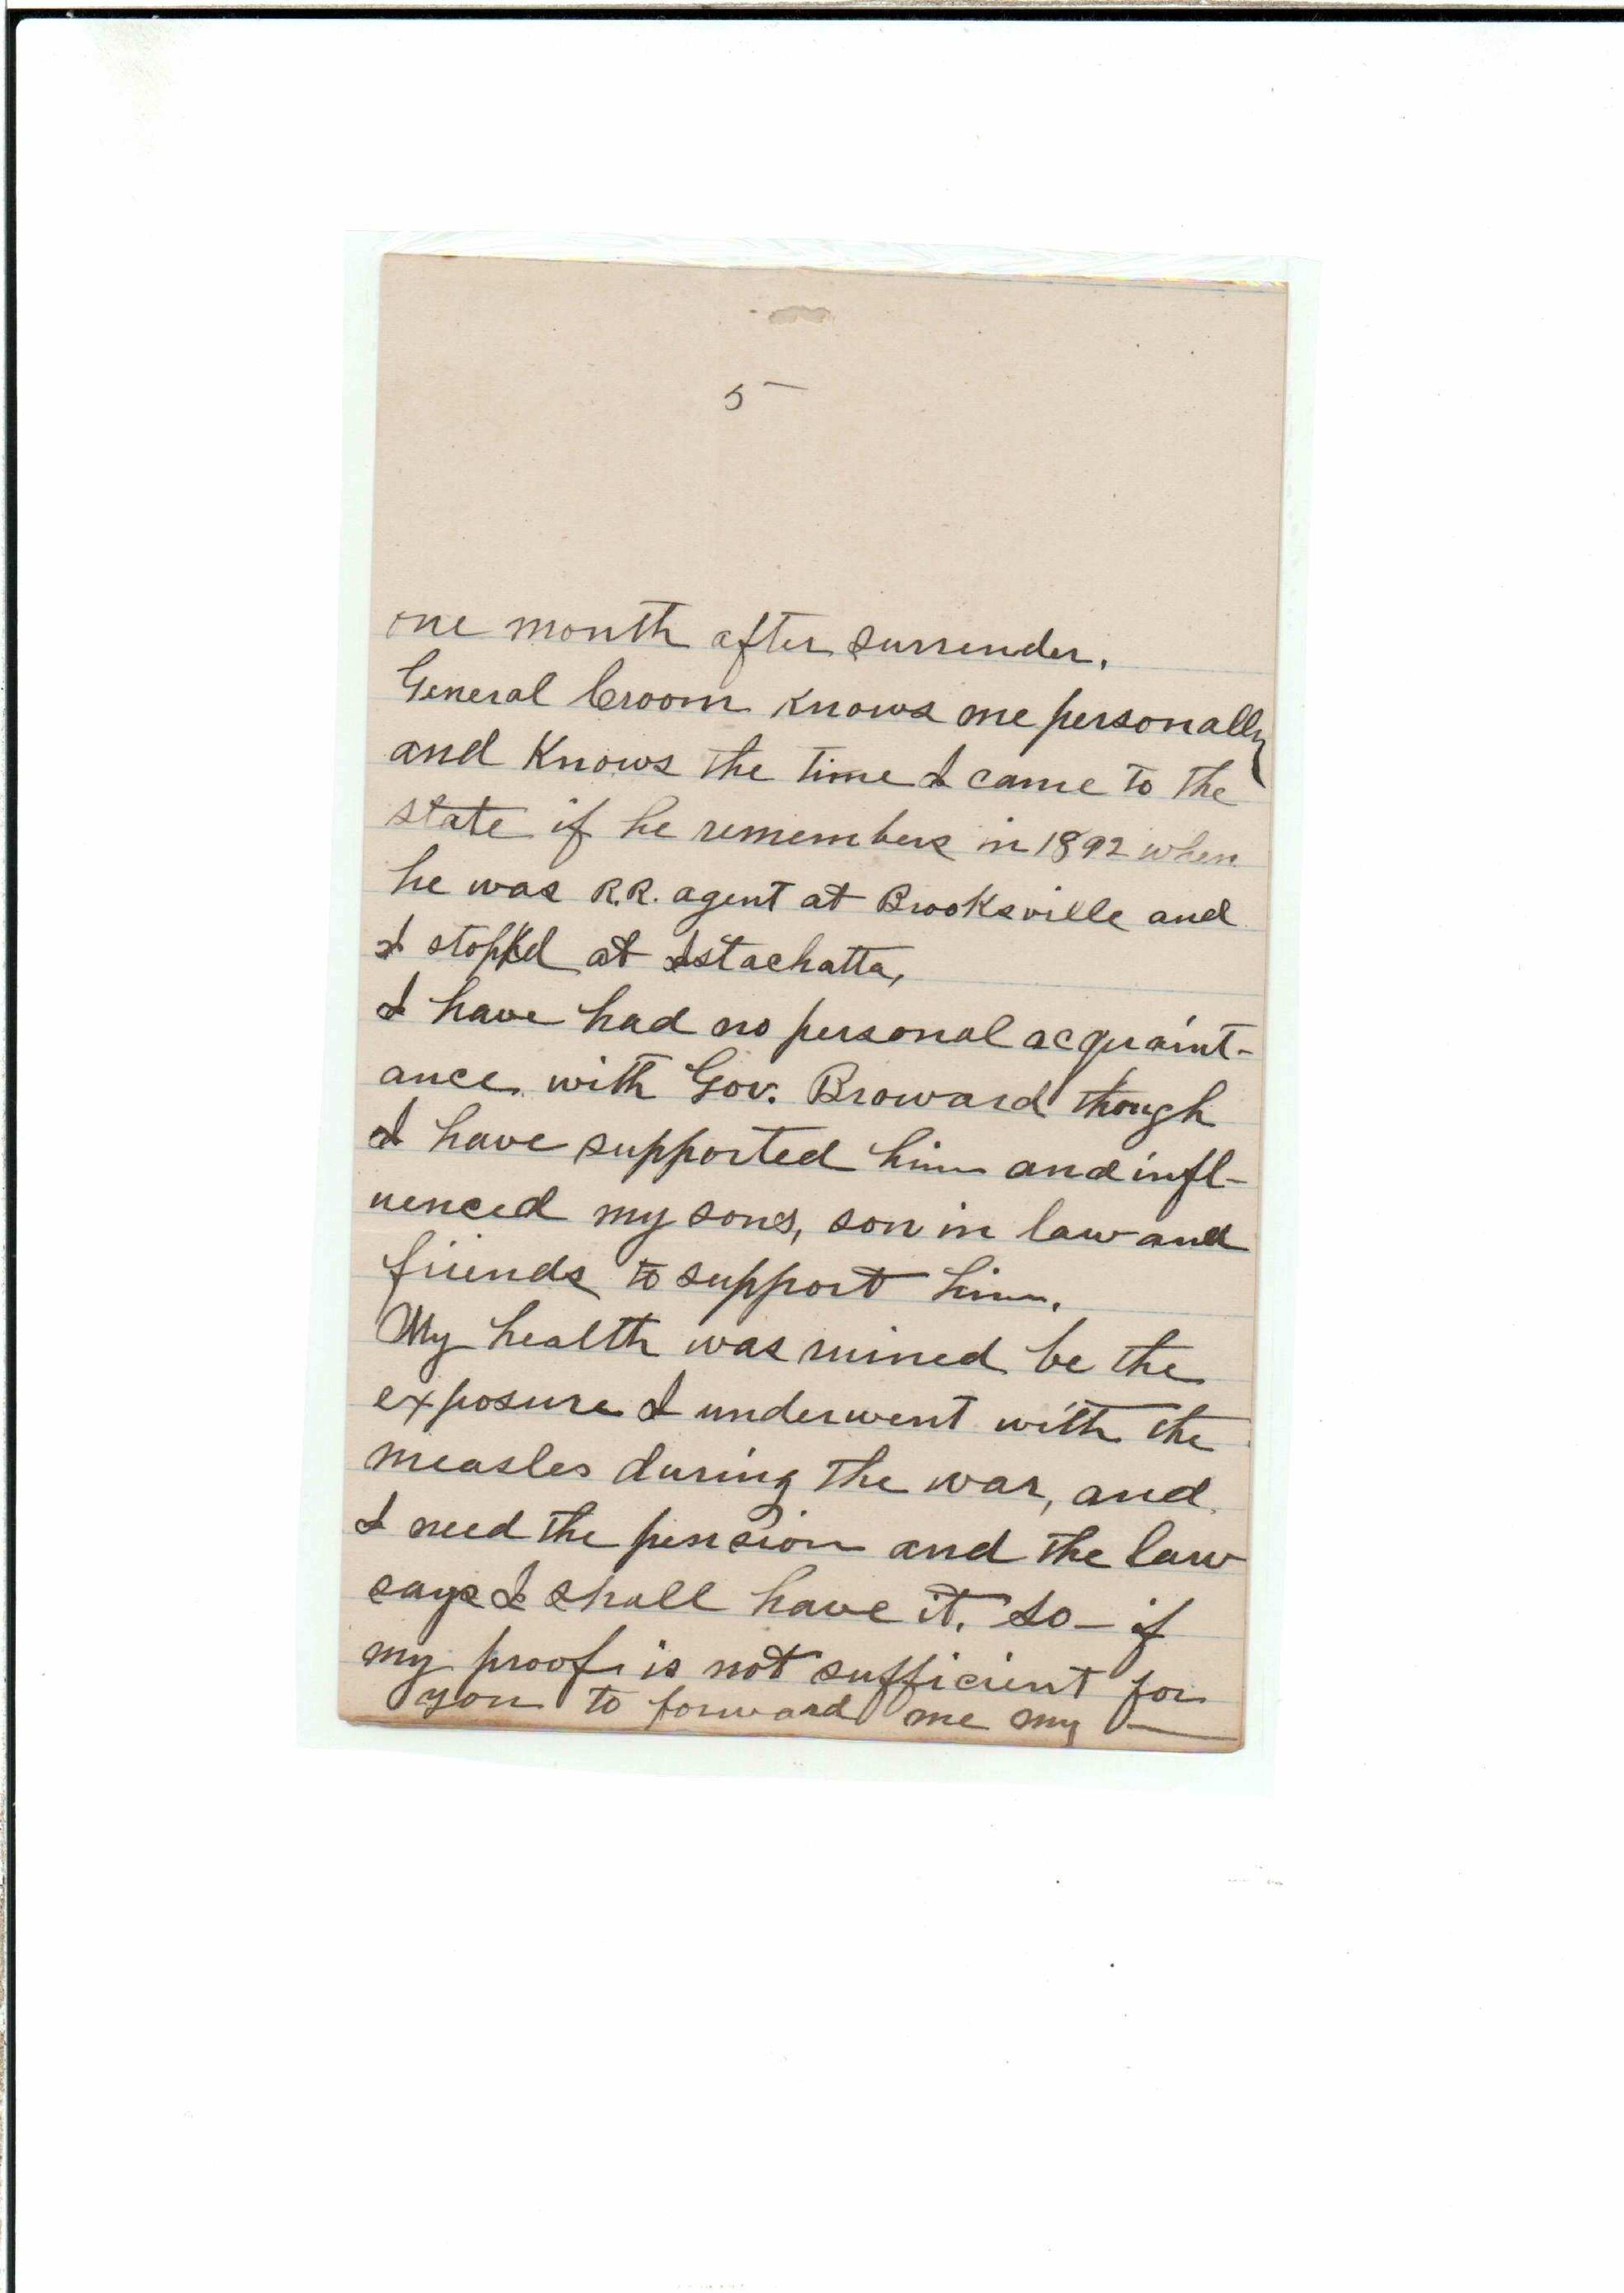 5
one month after surrender.
General Croom knows me personally
and knows the time I came to the
state if he remembers in 1892 when
he was R.R. agent at Brooksville and
I stopped at Istachatta,
I have had no personal acquaint-
ance with Gov. Broward though
I have supported him and infl-
uenced my sons, son in law and
friends to support him.
My health was ruined be the
exposure I underwent with the
measles during the war, and
I need the pension and the law
says I shall have it. So - if
my proof is not sufficient for
you to forward me my -